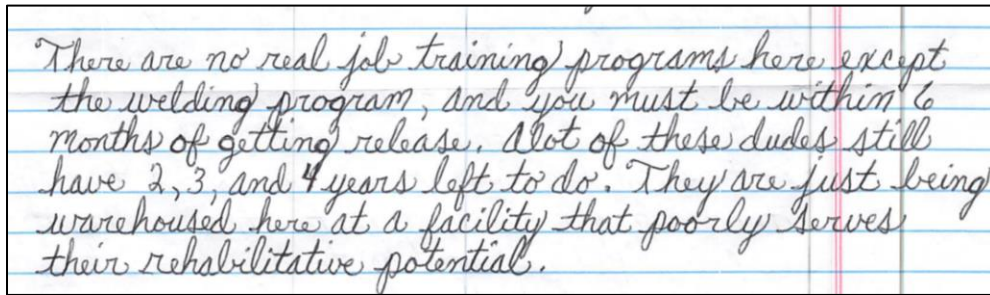 There are no real job training programs here except
the welding program, and you must be within 6
months of getting release. Alot of these dudes still
have 2, 3, and 4 years left to do. They are just being
warehoused here at a facility that poorly serves
their rehabilitative potential.